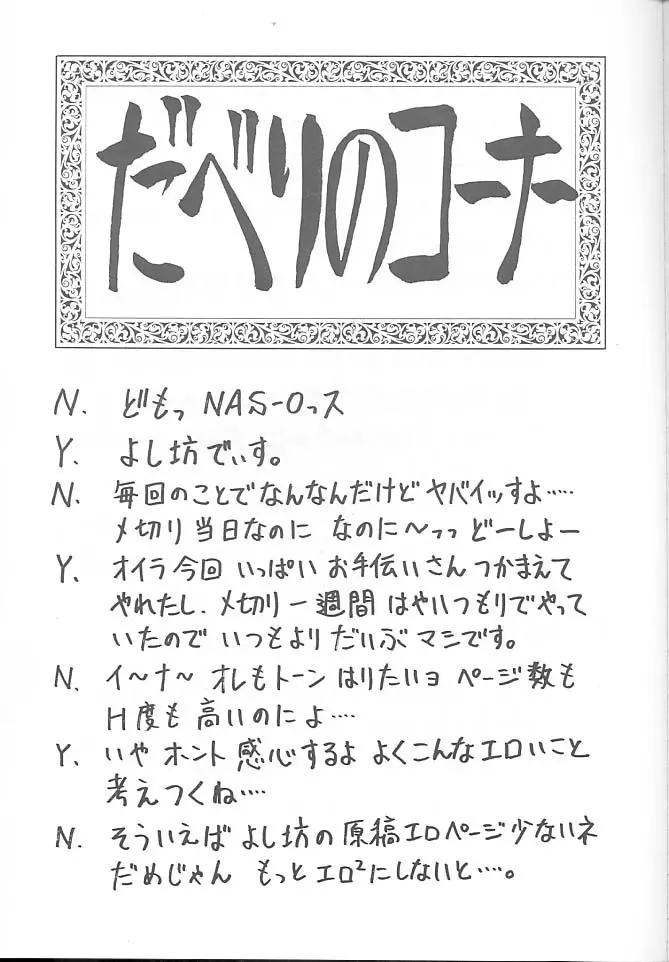 だべりのコーナー
N. どもっ NAS-Oっス
Y. よし坊でぃす。
N. 毎回のことでなんなんだけど ヤバイッすよ……
〆切り当日なのに なのに〜っっ どーしよー
Y. オイラ今回 いっぱい お手伝いさん つかまえて
やれたし、〆切り一週間 はやいつもりでやって
いたので いつもより だいぶ マシです。
N. イ〜ナ〜 オレもトーン はりたいヨ ページ数も
H度も 高いのによ……
Y. いや ホント 感心するよ よくこんなエロいこと
考えつくね……
N. そういえば よし坊の 原稿エロページ少ないネ
だめじゃん もっと エロ²にしないと……。